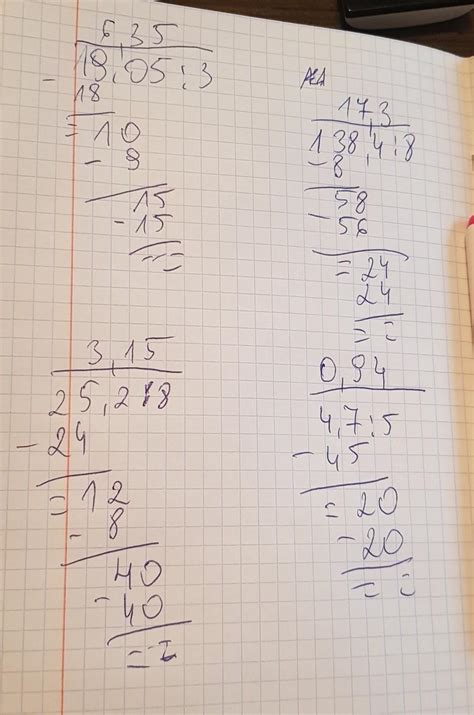 6,35
19,05:3
-18
=10
-9
15
-15
==
17,3
138,4:8
-8
58
-56
=24
24
==
3,15
25,2:8
-24
=12
-8
40
-40
==
0,94
4,7:5
-45
=20
-20
==